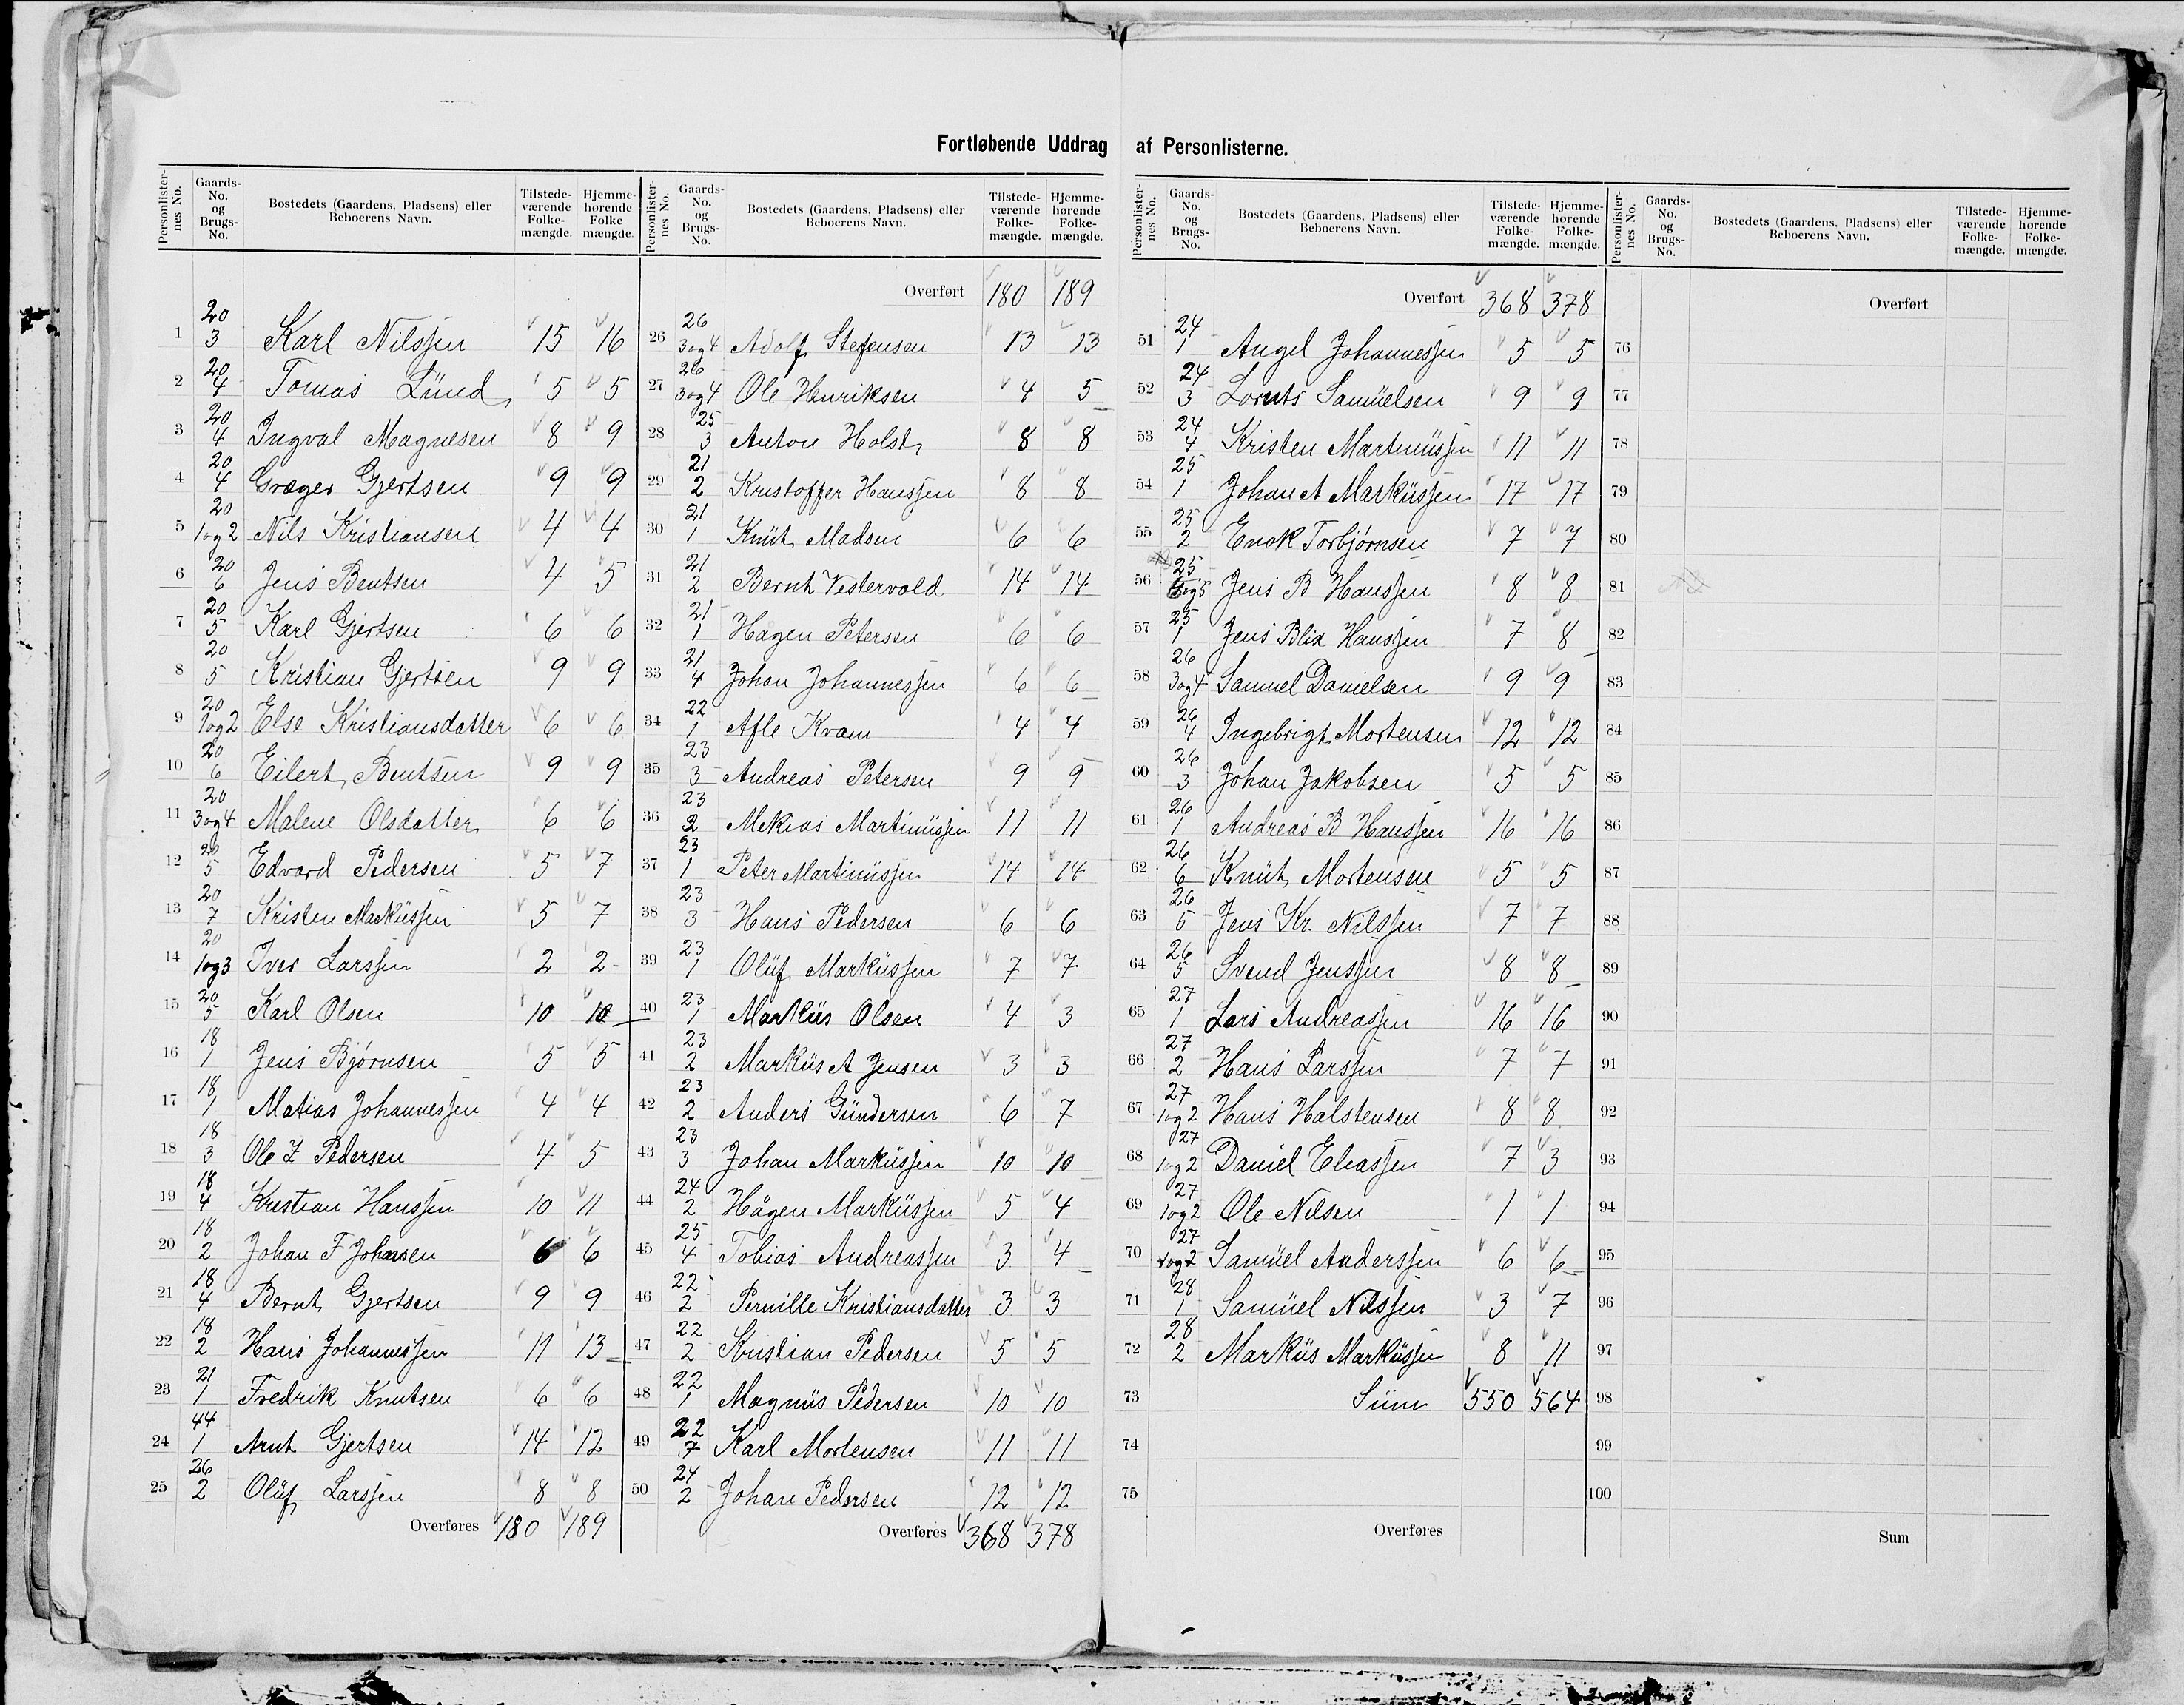 Fortløbende Uddrag af Personlisterne.
Personlister-nes No. Gaards-No. og Brugs-No. Bostedets (Gaardens, Pladsens) eller Beboerens Navn. Tilstede-værende Folke-mængde. Hjemme-hørende Folke mængde.
1 20/3 Karl Nilssen 15 16
2 20/4 Tomas Lund 5 5
3 20/4 Ingval Magnesen 8 9
4 20/4 Græger Gjertsen 9 9
5 20/1og2 Nils Kristiansen 4 4
6 20/6 Jens Bentsen 4 5
7 20/5 Karl Gjertsen 6 6
8 20/5 Kristian Gjertsen 9 9
9 20/1og2 Else Kristiansdatter 6 6
10 20/6 Eilert Bentsen 9 9
11 20/3og4 Malene Olsdatter 6 6
12 20/5 Edvard Pedersen 5 7
13 20/7 Kristen Markussen 5 7
14 20/1og3 Iver Larssen 2 2
15 20/5 Karl Olsen 10 10
16 18/1 Jens Bjørnsen 5 5
17 18/1 Matias Johannessen 4 4
18 18/3 Ole Z Pedersen 4 5
19 18/4 Kristian Hanssen 10 11
20 18/2 Johan F Johansen 6 6
21 18/4 Bernt Gjertsen 9 9
22 18/2 Hans Johannessen 11 13
23 21/1 Fredrik Knutsen 6 6
24 44/1 Arnt Gjertsen 14 12
25 26/2 Oluf Larssen 8 8
Overføres 180 189
Personlister-nes No. Gaards-No. og Brugs-No. Bostedets (Gaardens, Pladsens) eller Beboerens Navn. Tilstede-værende Folke-mængde. Hjemme-hørende Folke-mængde.
Overført 180 189
26 26/3og4 Adolf Stefensen 13 13
27 26/3og4 Ole Henriksen 4 5
28 25/3 Anton Holst 8 8
29 21/2 Kristoffer Hanssen 8 8
30 21/1 Knut Madsen 6 6
31 21/2 Bernt Vestervold 14 14
32 21/1 Hagen Petersen 6 6
33 21/4 Johan Johannessen 6 6
34 22/1 Afle Kvam 4 4
35 23/3 Andreas Petersen 9 9
36 23/2 Mekias Martinussen 11 11
37 23/1 Peter Martinussen 14 14
38 23/3 Hans Pedersen 6 6
39 23/1 Oluf Markussen 7 7
40 23/1 Markus Olsen 4 3
41 23/2 Markus A Jensen 3 3
42 23/2 Anders Gundersen 6 7
43 23/3 Johan Markussen 10 10
44 24/2 Hågen Markussen 5 4
45 25/4 Tobias Andreassen 3 4
46 22/2 Pernille Kristiansdatter 3 3
47 22/2 Kristian Pedersen 5 5
48 22/1 Magnus Pedersen 10 10
49 22/7 Karl Mortensen 11 11
50 24/2 Johan Pedersen 12 12
Overføres 368 378
Personlister-nes No. Gaards-No. og Brugs-No. Bostedets (Gaardens, Pladsens) eller Beboerens Navn. Tilstede-værende Folke-mængde. Hjemme-hørende Folke-mængde.
Overført 368 378
51 24/1 Angel Johannessen 5 5
52 24/3 Lornts Samuelsen 9 9
53 24/4 Kristen Martinussen 11 11
54 25/1 Johan A Markussen 17 17
55 25/2 Enok Torbjørnsen 7 7
56 25/og5 Jens B Hanssen 8 8
57 25/1 Jens Blix Hanssen 7 8
58 26/3og4 Samuel Danielsen 9 9
59 26/4 Ingebrigt Mortensen 12 12
60 26/3 Johan Jakobsen 5 5
61 26/1 Andreas B Hanssen 16 16
62 26/6 Knut Mortensen 5 5
63 26/5 Jens Kr. Nilssen 7 7
64 26/5 Svend Jenssen 8 8
65 27/1 Lars Andreassen 16 16
66 27/2 Hans Larssen 7 7
67 27/1og2 Hans Halstensen 8 8
68 27/1og2 Daniel Eliassen 7 3
69 27/1og2 Ole Nilsen 1 1
70 27/1og2 Samuel Anderssen 6 6
71 28/1 Samuel Nilssen 3 7
72 28/2 Markus Markussen 8 11
73 Sum 550 564
74
75
Overføres
Personlister-nes No. Gaards-No. og Brugs-No. Bostedets (Gaardens, Pladsens) eller Beboerens Navn. Tilstede-værende Folke-mængde. Hjemme-hørende Folke-mængde.
Overført
76
77
78
79
80
81
82
83
84
85
86
87
88
89
90
91
92
93
94
95
96
97
98
99
100
Sum